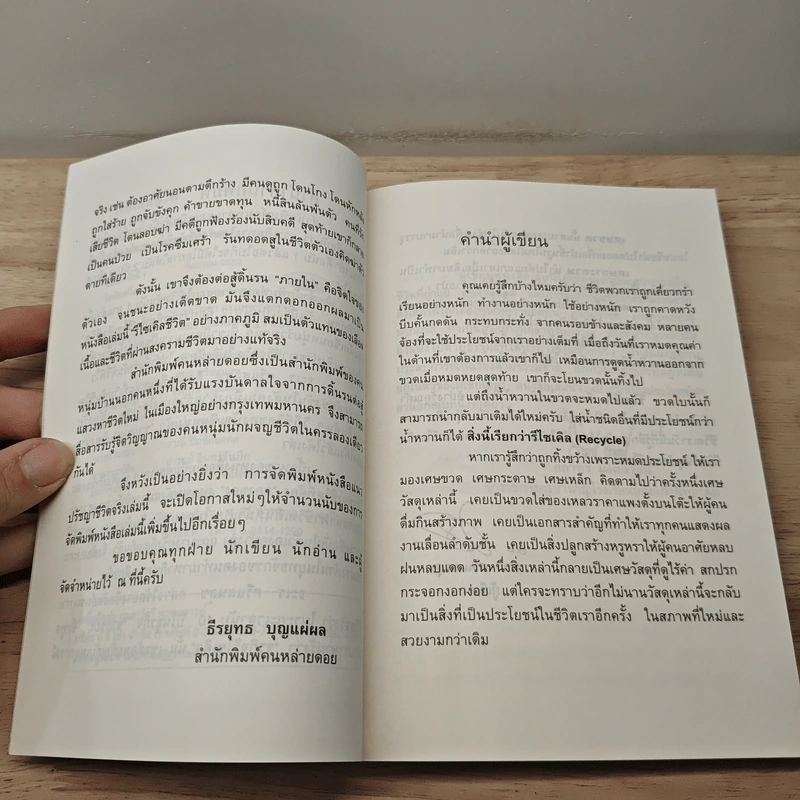 จริง เช่น ต้องอาศัยนอนตามตึกร้าง มีคนดูถูก โดนโกง โดนหักหลัง
ถูกใส่ร้าย ถูกจับขังคุก ค้าขายขาดทุน หนี้สินล้นพ้นตัว คนที่รัก
เสียชีวิต โดนลอบฆ่า มีคดีถูกฟ้องร้องนับสิบคดี สุดท้ายเขาก็กลาย
เป็นคนป่วย เป็นโรคซึมเศร้า รันทดอดสูในชีวิตตัวเองคิดฆ่าตัว
ตายทีเดียว
ดังนั้น เขาจึงต้องต่อสู้ดิ้นรน “ภายใน” คือจิตใจของ
ตัวเอง จนชนะอย่างเด็ดขาด มันจึงแตกดอกออกผลมาเป็น
หนังสือเล่มนี้-“รีไซเคิลชีวิต” อย่างภาคภูมิ สมเป็นตัวแทนของเลือด
เนื้อและชีวิตที่ผ่านสงครามชีวิตมาอย่างแท้จริง
สำนักพิมพ์คนหล่ายดอยซึ่งเป็นสำนักพิมพ์ของคน
หนุ่มบ้านนอกคนหนึ่งที่ได้รับแรงบันดาลใจจากการดิ้นรนต่อสู้
แสวงหาชีวิตใหม่ ในเมืองใหญ่อย่างกรุงเทพมหานคร จึงสามารถ
สื่อสารรับรู้จิตวิญญาณของคนหนุ่มนักผจญชีวิตในครรลองเดียว
กันได้
จึงหวังเป็นอย่างยิ่งว่า การจัดพิมพ์หนังสือแนว
ปรัชญาชีวิตจริงเล่มนี้ จะเปิดโอกาสใหม่ๆให้จำนวนนับของการ
จัดพิมพ์หนังสือเล่มนี้เพิ่มขึ้นไปอีกเรื่อยๆ
ขอขอบคุณทุกฝ่าย นักเขียน นักอ่าน และผู้
จัดจำหน่ายไว้ ณ ที่นี้ครับ
ธีรยุทธ บุญแผ่ผล
สำนักพิมพ์คนหล่ายดอย
คำนำผู้เขียน
คุณเคยรู้สึกบ้างไหมครับว่า ชีวิตพวกเราถูกเคี่ยวกรำ
เรียนอย่างหนัก ทำงานอย่างหนัก ใช้อย่างหนัก เราถูกคาดหวัง
บีบคั้นกดดัน กระทบกระทั่ง จากคนรอบข้างและสังคม หลายคน
จ้องที่จะใช้ประโยชน์จากเราอย่างเต็มที่ เมื่อถึงวันที่เราหมดคุณค่า
ในด้านที่เขาต้องการแล้วเขาก็ไป เหมือนการดูดน้ำหวานออกจาก
ขวดเมื่อหมดหยดสุดท้าย เขาก็จะโยนขวดนั้นทิ้งไป
แต่ถึงน้ำหวานในขวดจะหมดไปแล้ว ขวดใบนั้นก็
สามารถนำกลับมาเติมได้ใหม่ครับ ใส่น้ำชนิดอื่นที่มีประโยชน์กว่า
น้ำหวานก็ได้ สิ่งนี้เรียกว่ารีไซเคิล (Recycle)
หากเรารู้สึกว่าถูกทิ้งขว้างเพราะหมดประโยชน์ ให้เรา
มองเศษขวด เศษกระดาษ เศษเหล็ก คิดตามไปว่าครั้งหนึ่งเศษ
วัสดุเหล่านี้ เคยเป็นขวดใส่ของเหลวราคาแพงตั้งบนโต๊ะให้ผู้คน
ดื่มกินสร้างภาพ เคยเป็นเอกสารสำคัญที่ทำให้เราทุกคนแสดงผล
งานเลื่อนลำดับชั้น เคยเป็นสิ่งปลูกสร้างหรูหราให้ผู้คนอาศัยหลบ
ฝนหลบแดด วันหนึ่งสิ่งเหล่านี้กลายเป็นเศษวัสดุที่ดูไร้ค่า สกปรก
กระจอกงอกง่อย แต่ใครจะทราบว่าอีกไม่นานวัสดุเหล่านี้จะกลับ
มาเป็นสิ่งที่เป็นประโยชน์ในชีวิตเราอีกครั้ง ในสภาพที่ใหม่และ
สวยงามกว่าเดิม